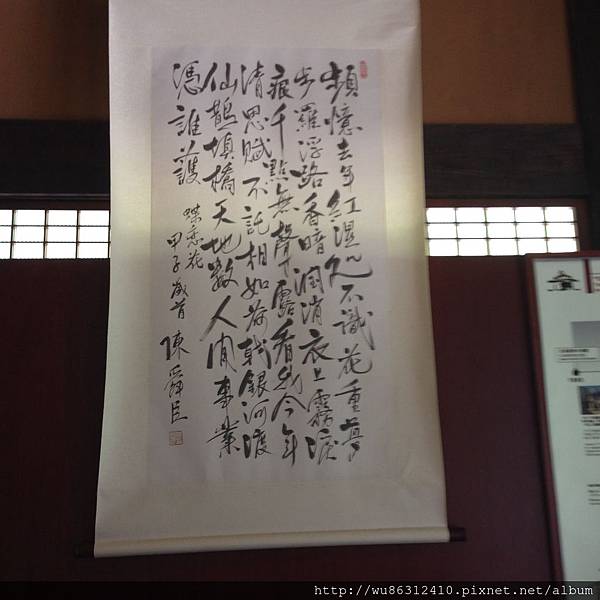 頻憶去年紅濕處不識花重夢
步羅浮路香暗潤消衣上霧淚
痕千點無聲露看到今年
清思賦不託相如荷戟銀河渡
仙鵲填橋天地數人間事業
憑誰護
蝶恋花
甲子歲首
陳舜臣
http://wu86312410.pixnet.net/album